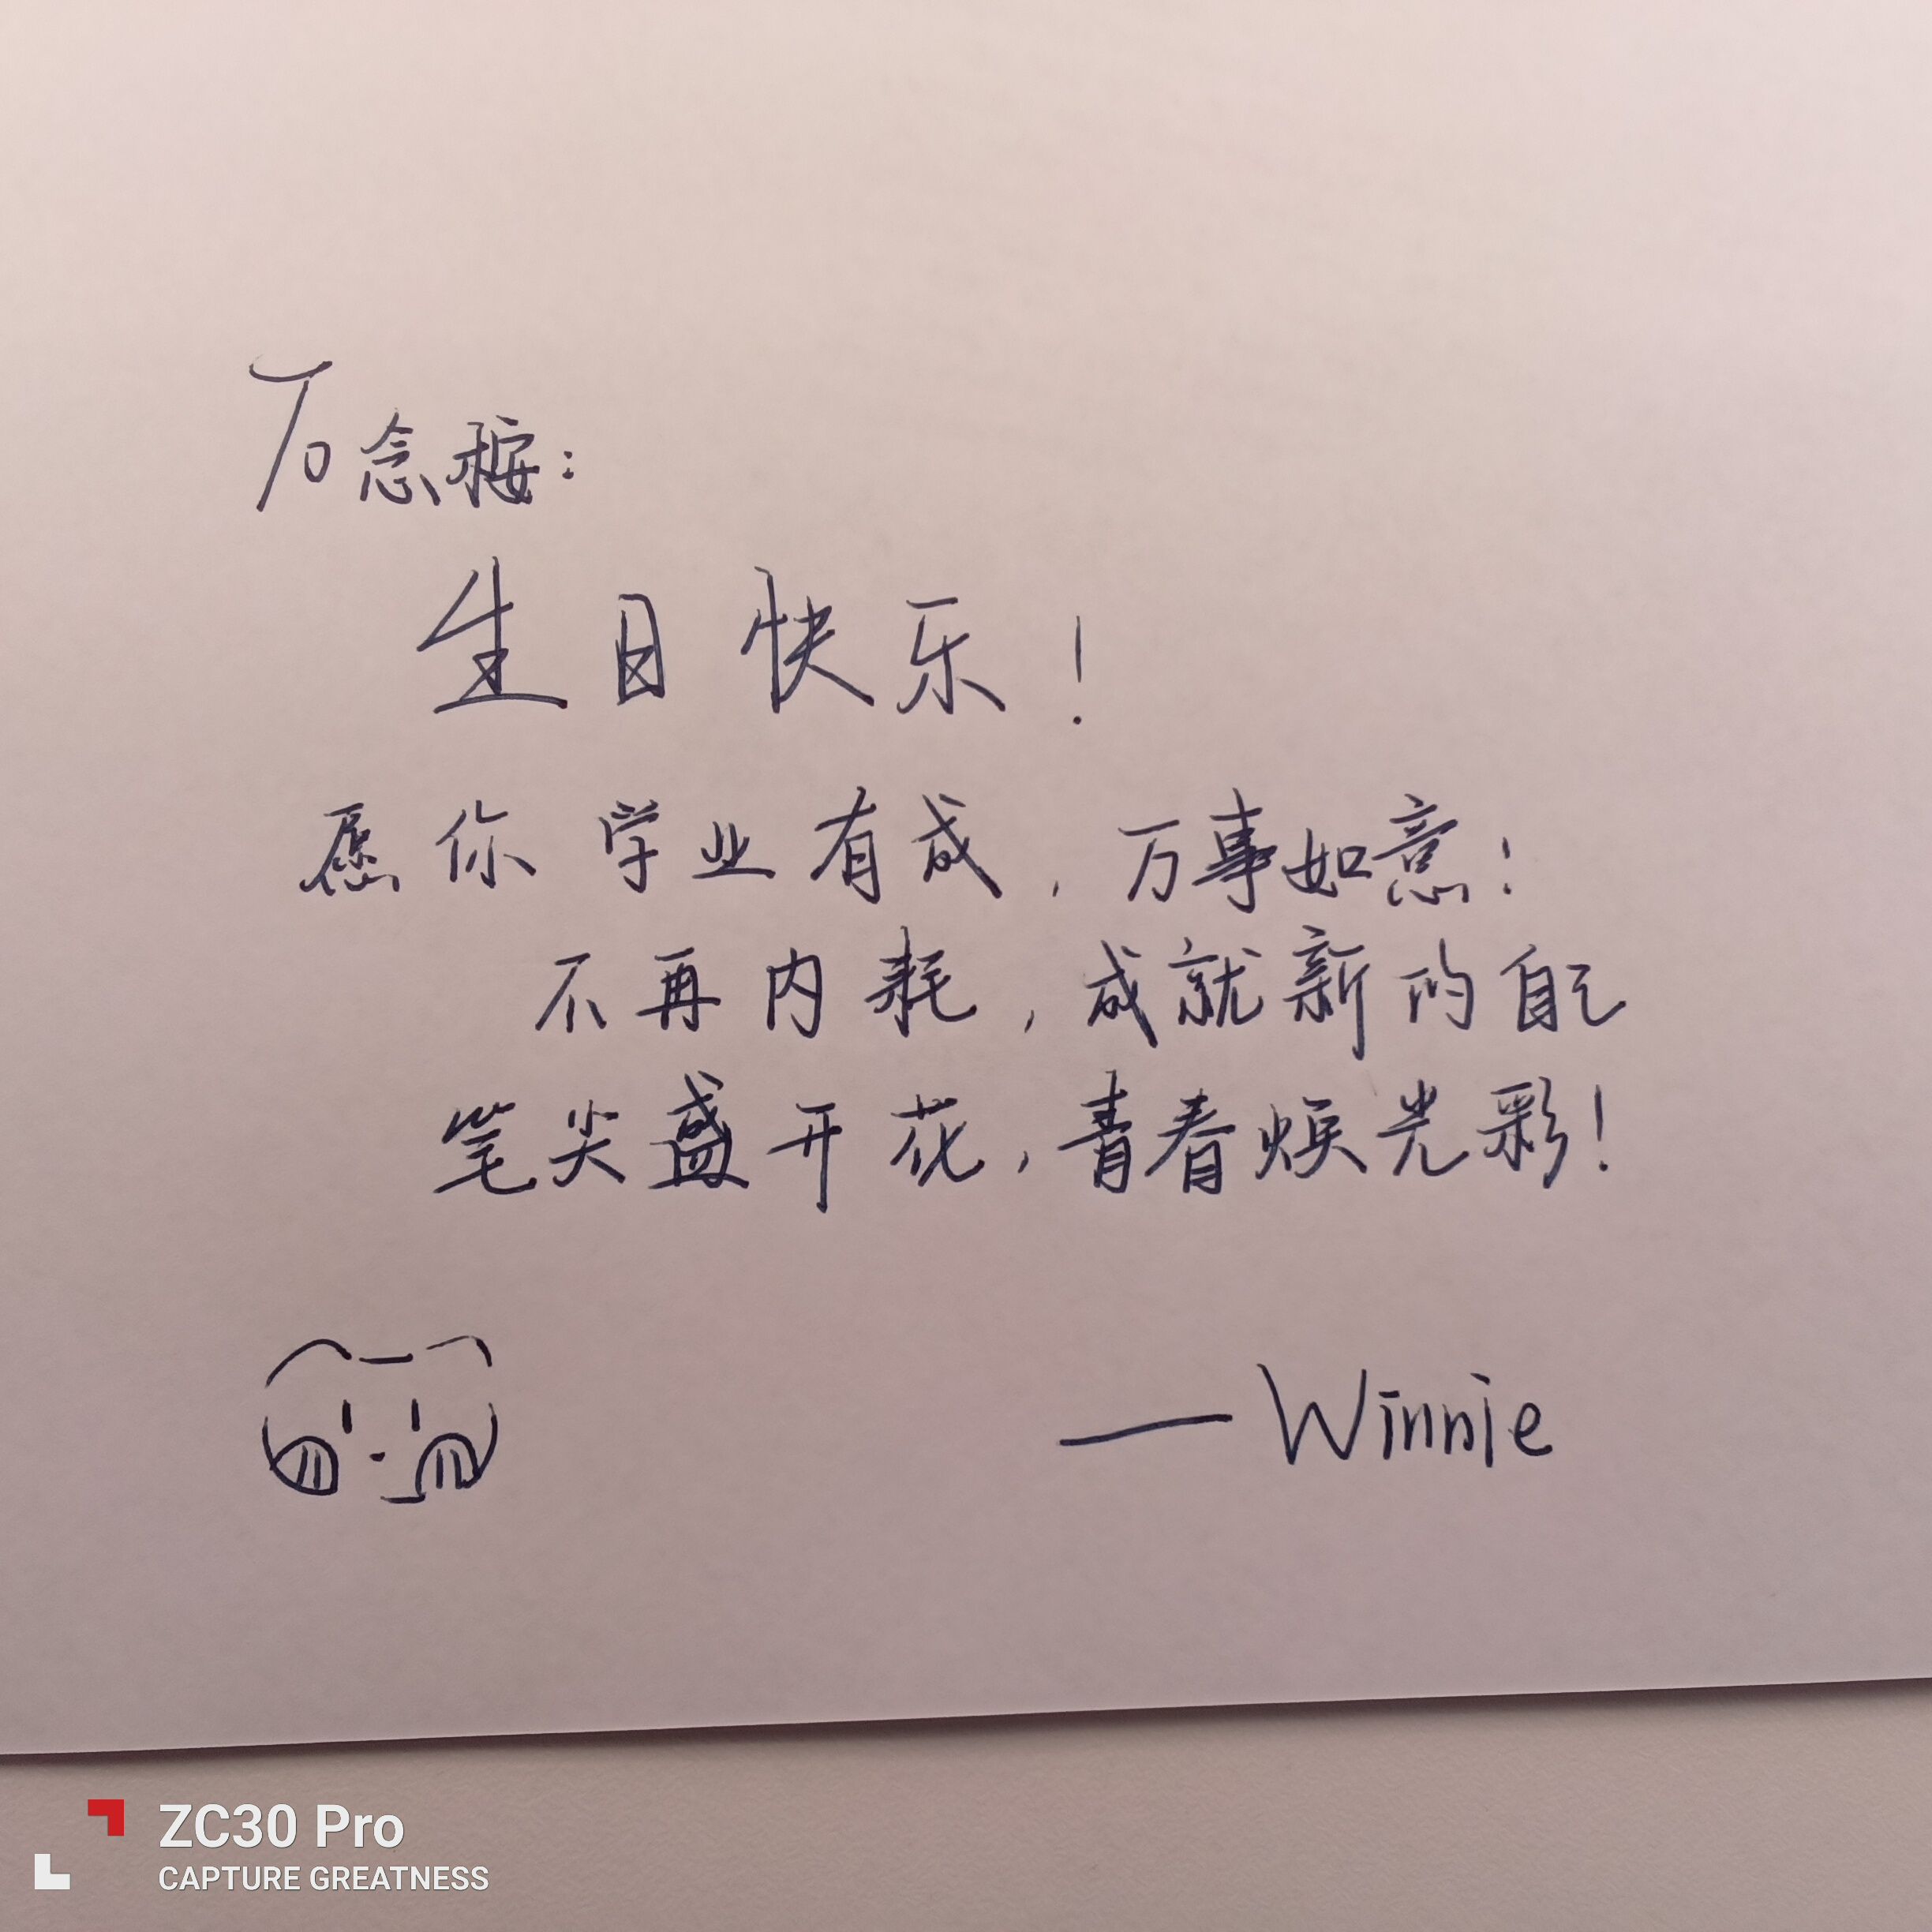 To 念桉：
生日快乐！
愿你学业有成，万事如意！
不再内耗，成就新的自己
笔尖盛开花，青春焕光彩！
— Winnie
ZC30 Pro
CAPTURE GREATNESS